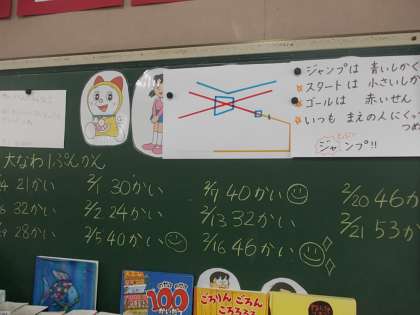 ジャンプは 青いしかく
スタートは 小さいしか
ゴールは 赤いせん
いつも まえの人にくっ
つめ
ジャンプ!!
大なわ1ぷんかん
21かい
32かい
28かい
2/1 30かい
2/2 24かい
2/5 40かい
2/9 40かい
2/13 32かい
2/16 46かい
2/20 46か
2/21 53か
100
かいだて
ごろりん ごろん
ころろろろ